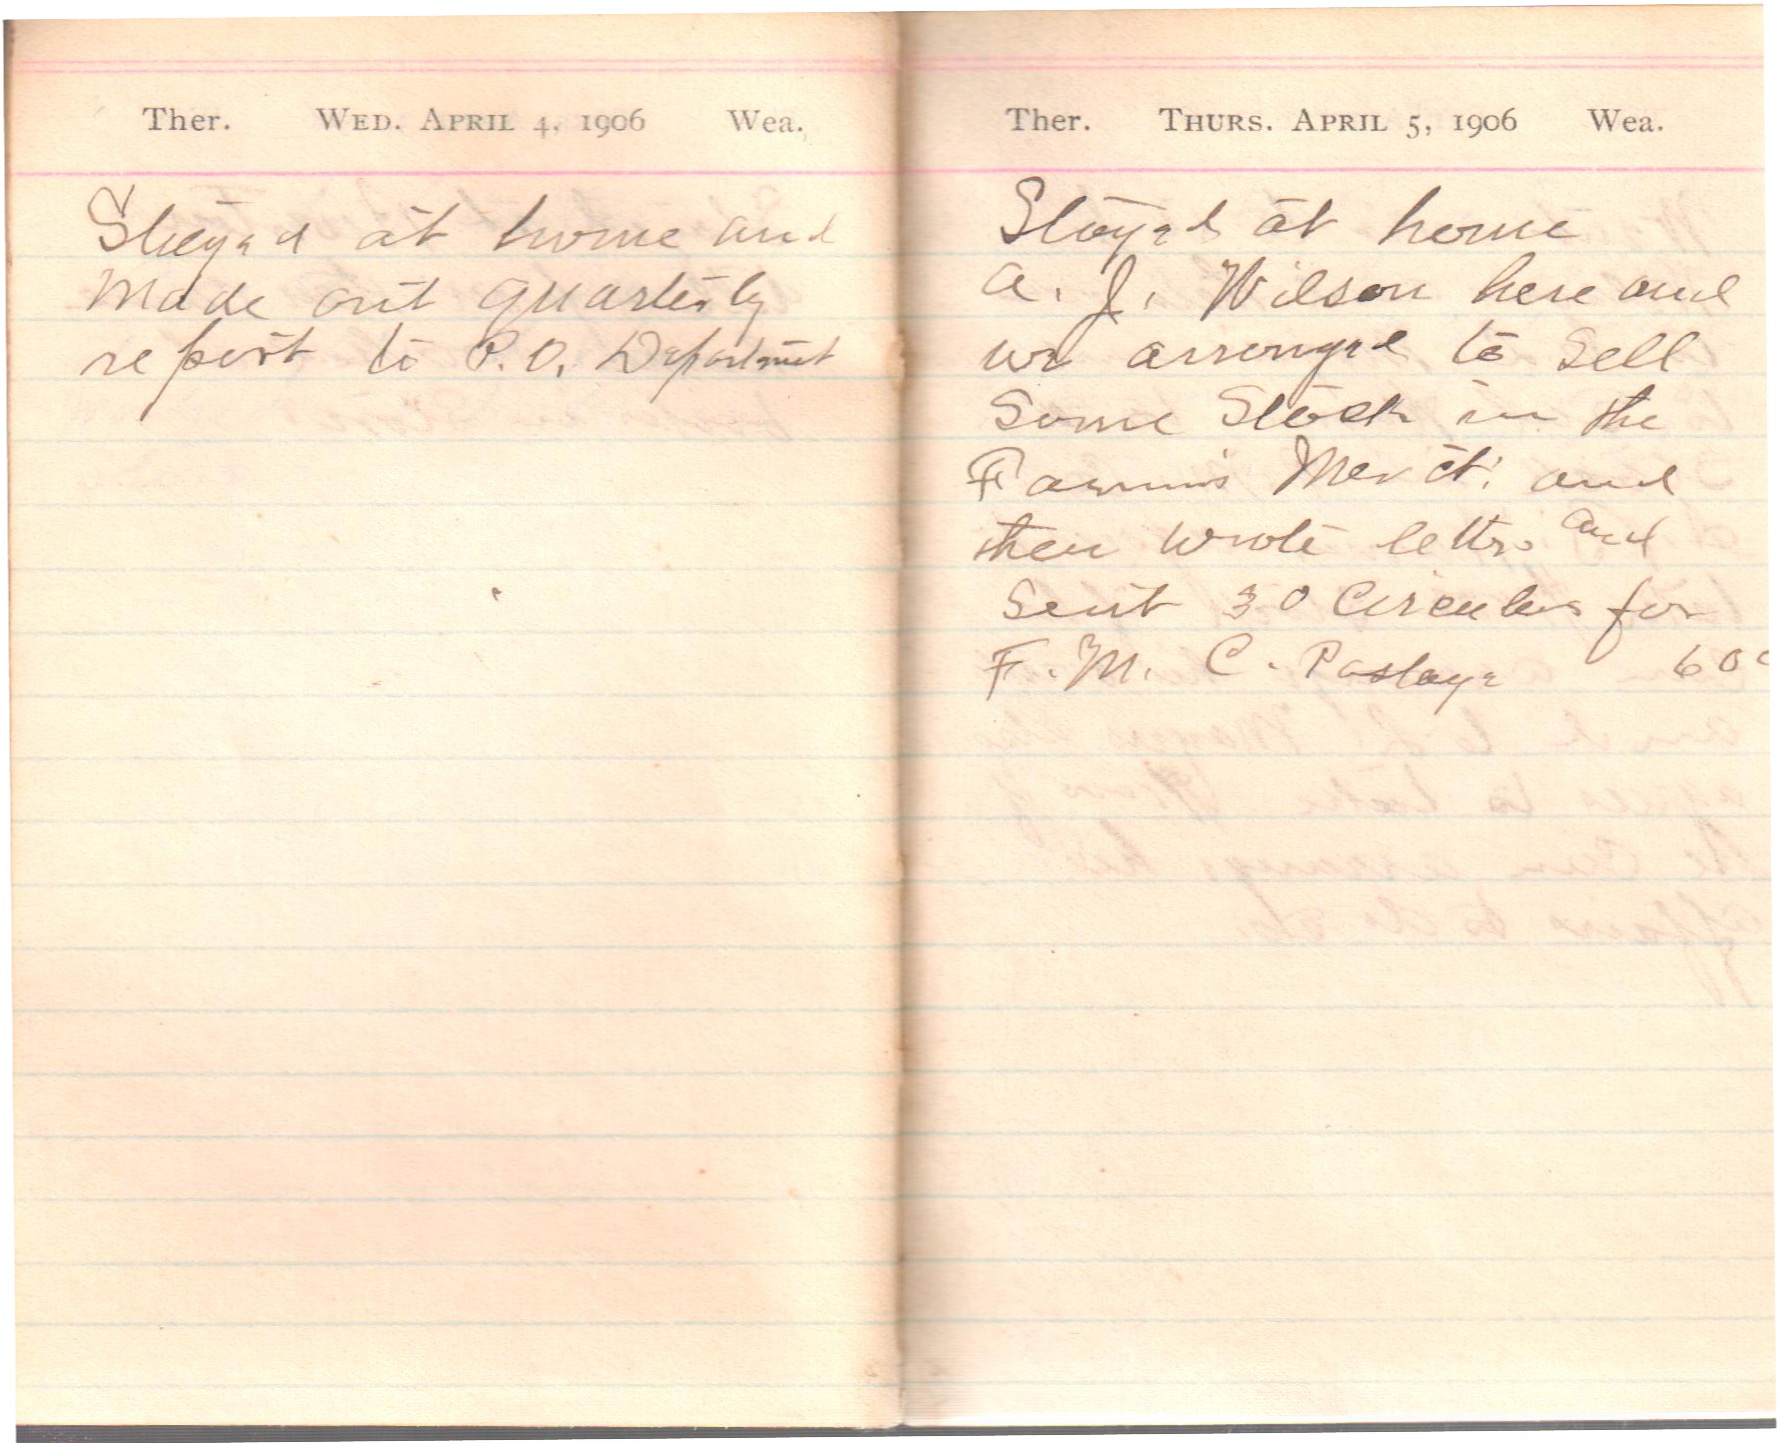 Ther. WED. APRIL 4, 1906 Wea.
Stayed at home and
Made out quarterly
report to P.O. Department
Ther. THURS. APRIL 5, 1906 Wea.
Stayed at home
A. J. Wilson here and
we arranged to sell
Some Stock in the
Farmers Merct. and
then wrote letters and
Sent 30 Circulars for
F. M. C. Postage 60c